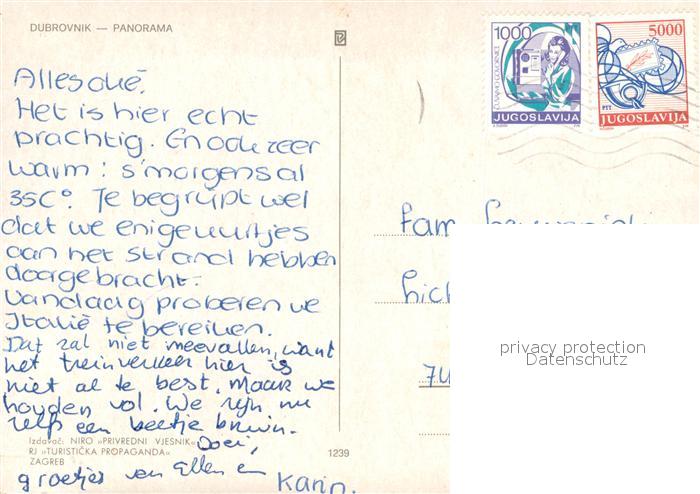 DUBROVNIK — PANORAMA
Alles oké.
Het is hier echt
prachtig. En ook zeer
warm: s'morgens al
35C°. Je begrijpt wel
dat we enige uurtjes
aan het strand hebben
doorgebracht.
Vandaag proberen we
Italië te bereiken.
Dat zal niet meevallen, want
het treinverkeer hier is
niet al te best. Maar we
houden vol. We zijn nu
zelfs een beetje bruin.
Doei,
groetjes van Ellen en
Karin.
Izdavač: NIRO »PRIVREDNI VJESNIK«
RJ »TURISTIČKA PROPAGANDA«
ZAGREB
1239
1000
JUGOSLAVIJA
5000
PTT
JUGOSLAVIJA
Fam
privacy protection
Datenschutz